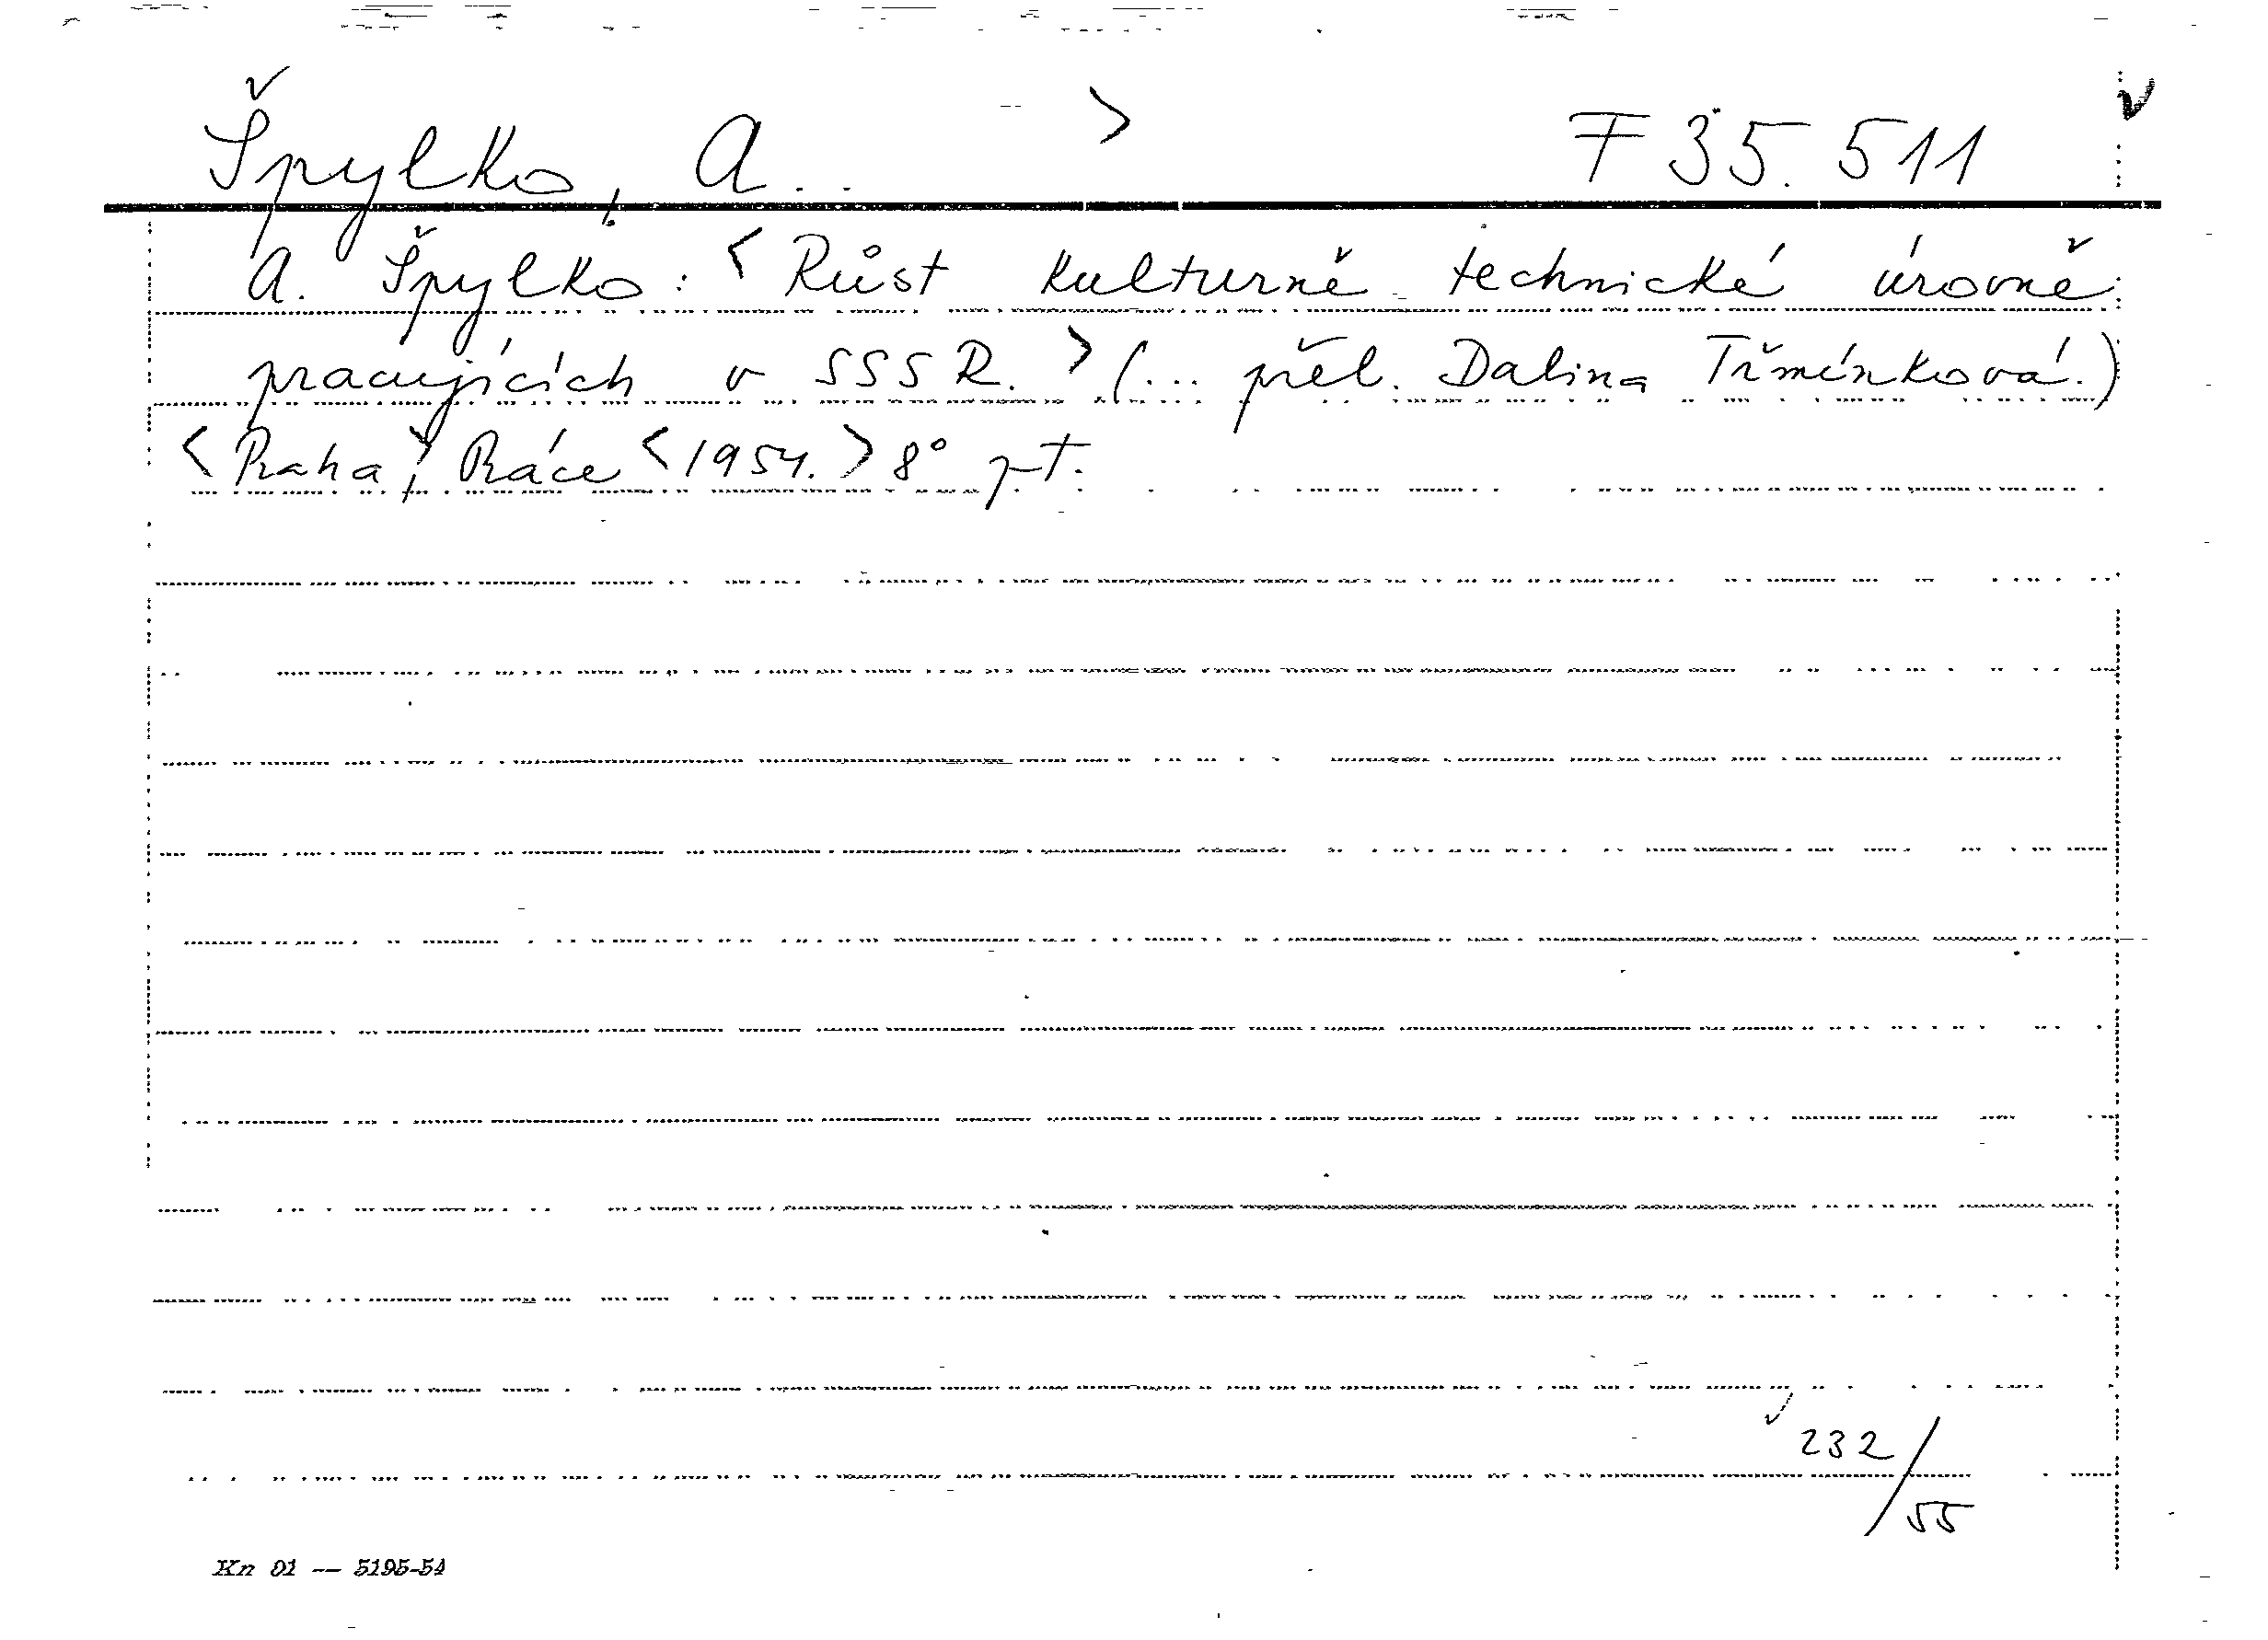 Špylko, A. . . > F 35.511
A. Špylko: < Růst kulturně technické úrovně
pracujících v SSSR. > (... přel. Dalina Třmínková.)
< Praha, > Práce < 1954. > 8°
232/55
Kn 01 — 5195-54